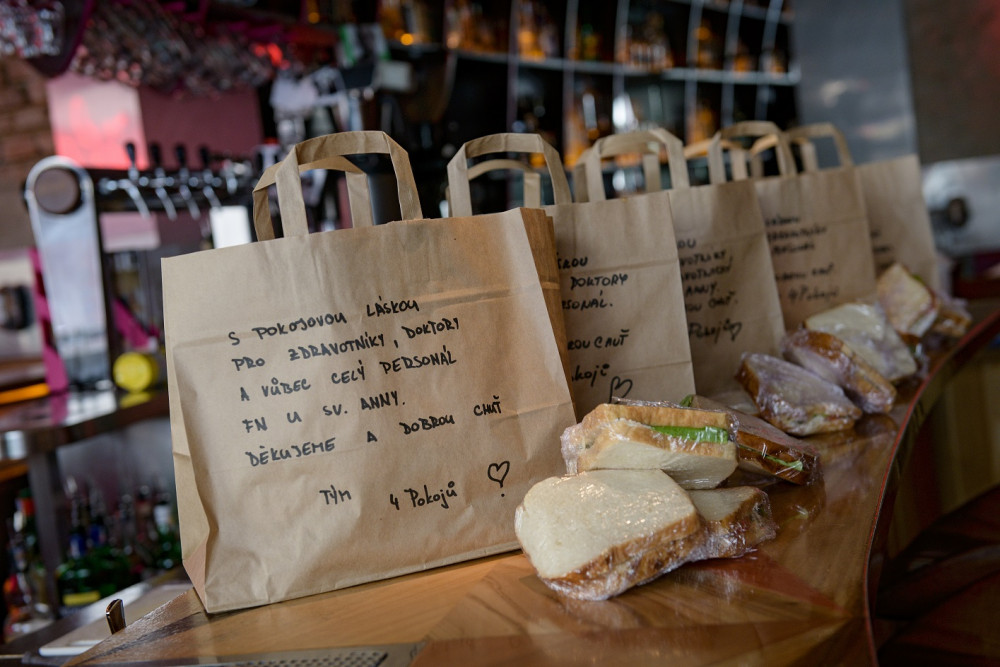 S POKOJOVOU LÁSKOU
PRO ZDRAVOTNÍKY, DOKTORY
A VŮBEC CELÝ PERSONÁL
FN U SV. ANNY.
DĚKUJEME A DOBROU CHUŤ
TÝM 4 Pokojů
DOKTORY
CHUŤ
ANNY.
CHUŤ.
Pokojů
CHUŤ
4 Pokojů